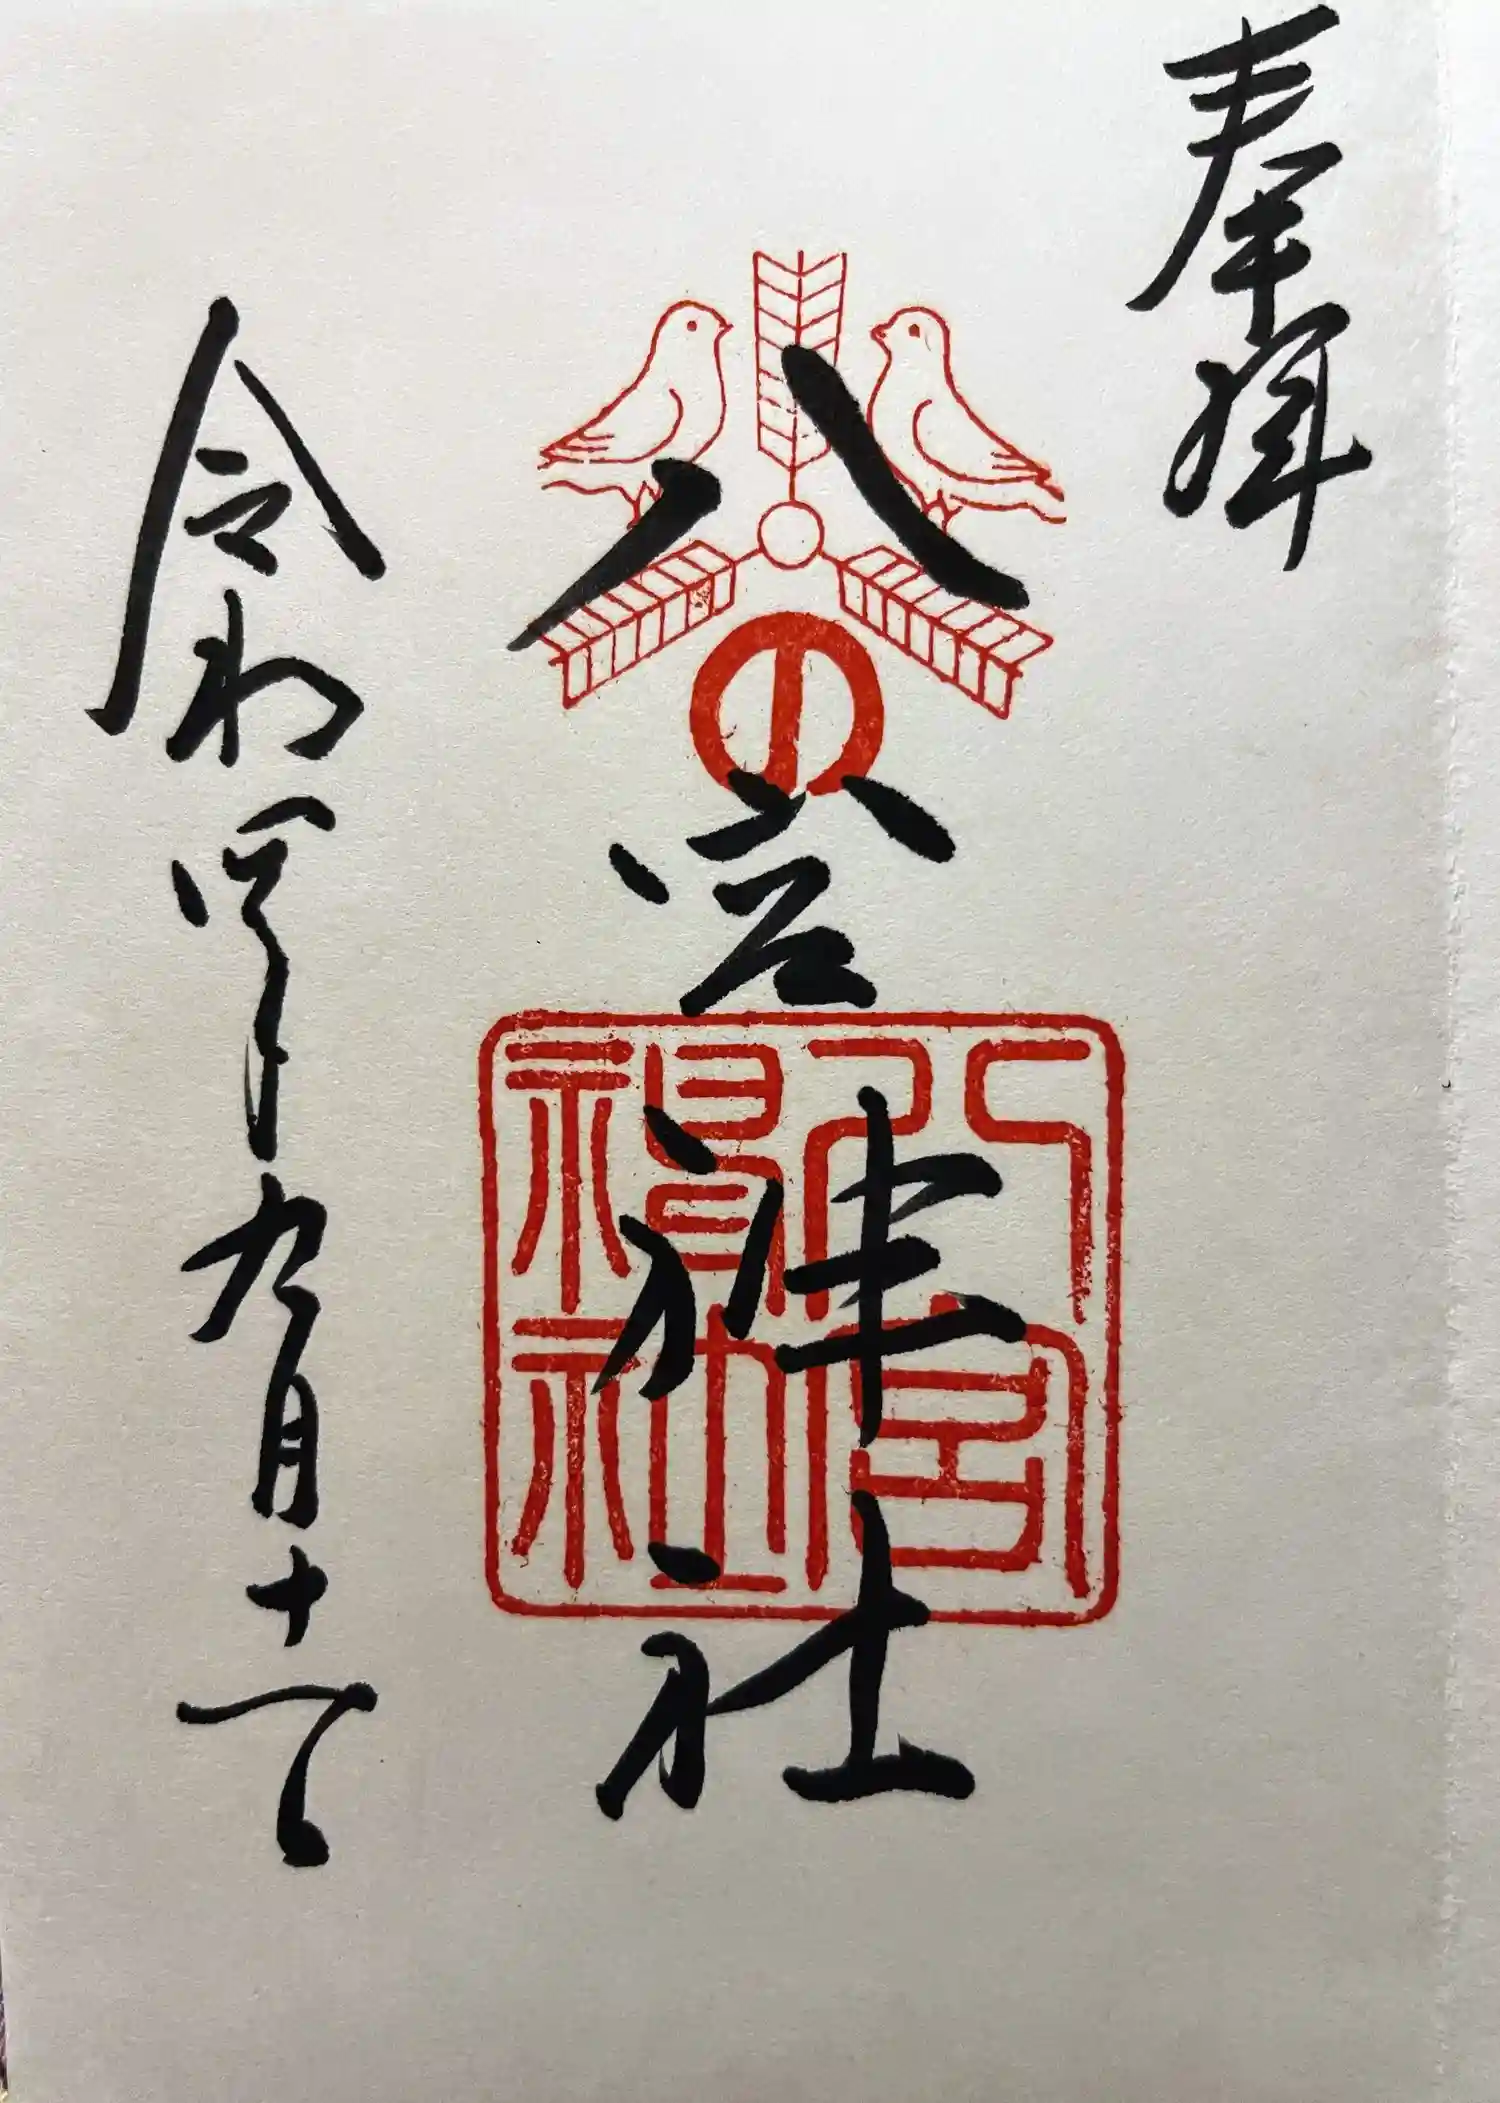 奉拝
八宮神社
八宮神社
令和四年九月十一日